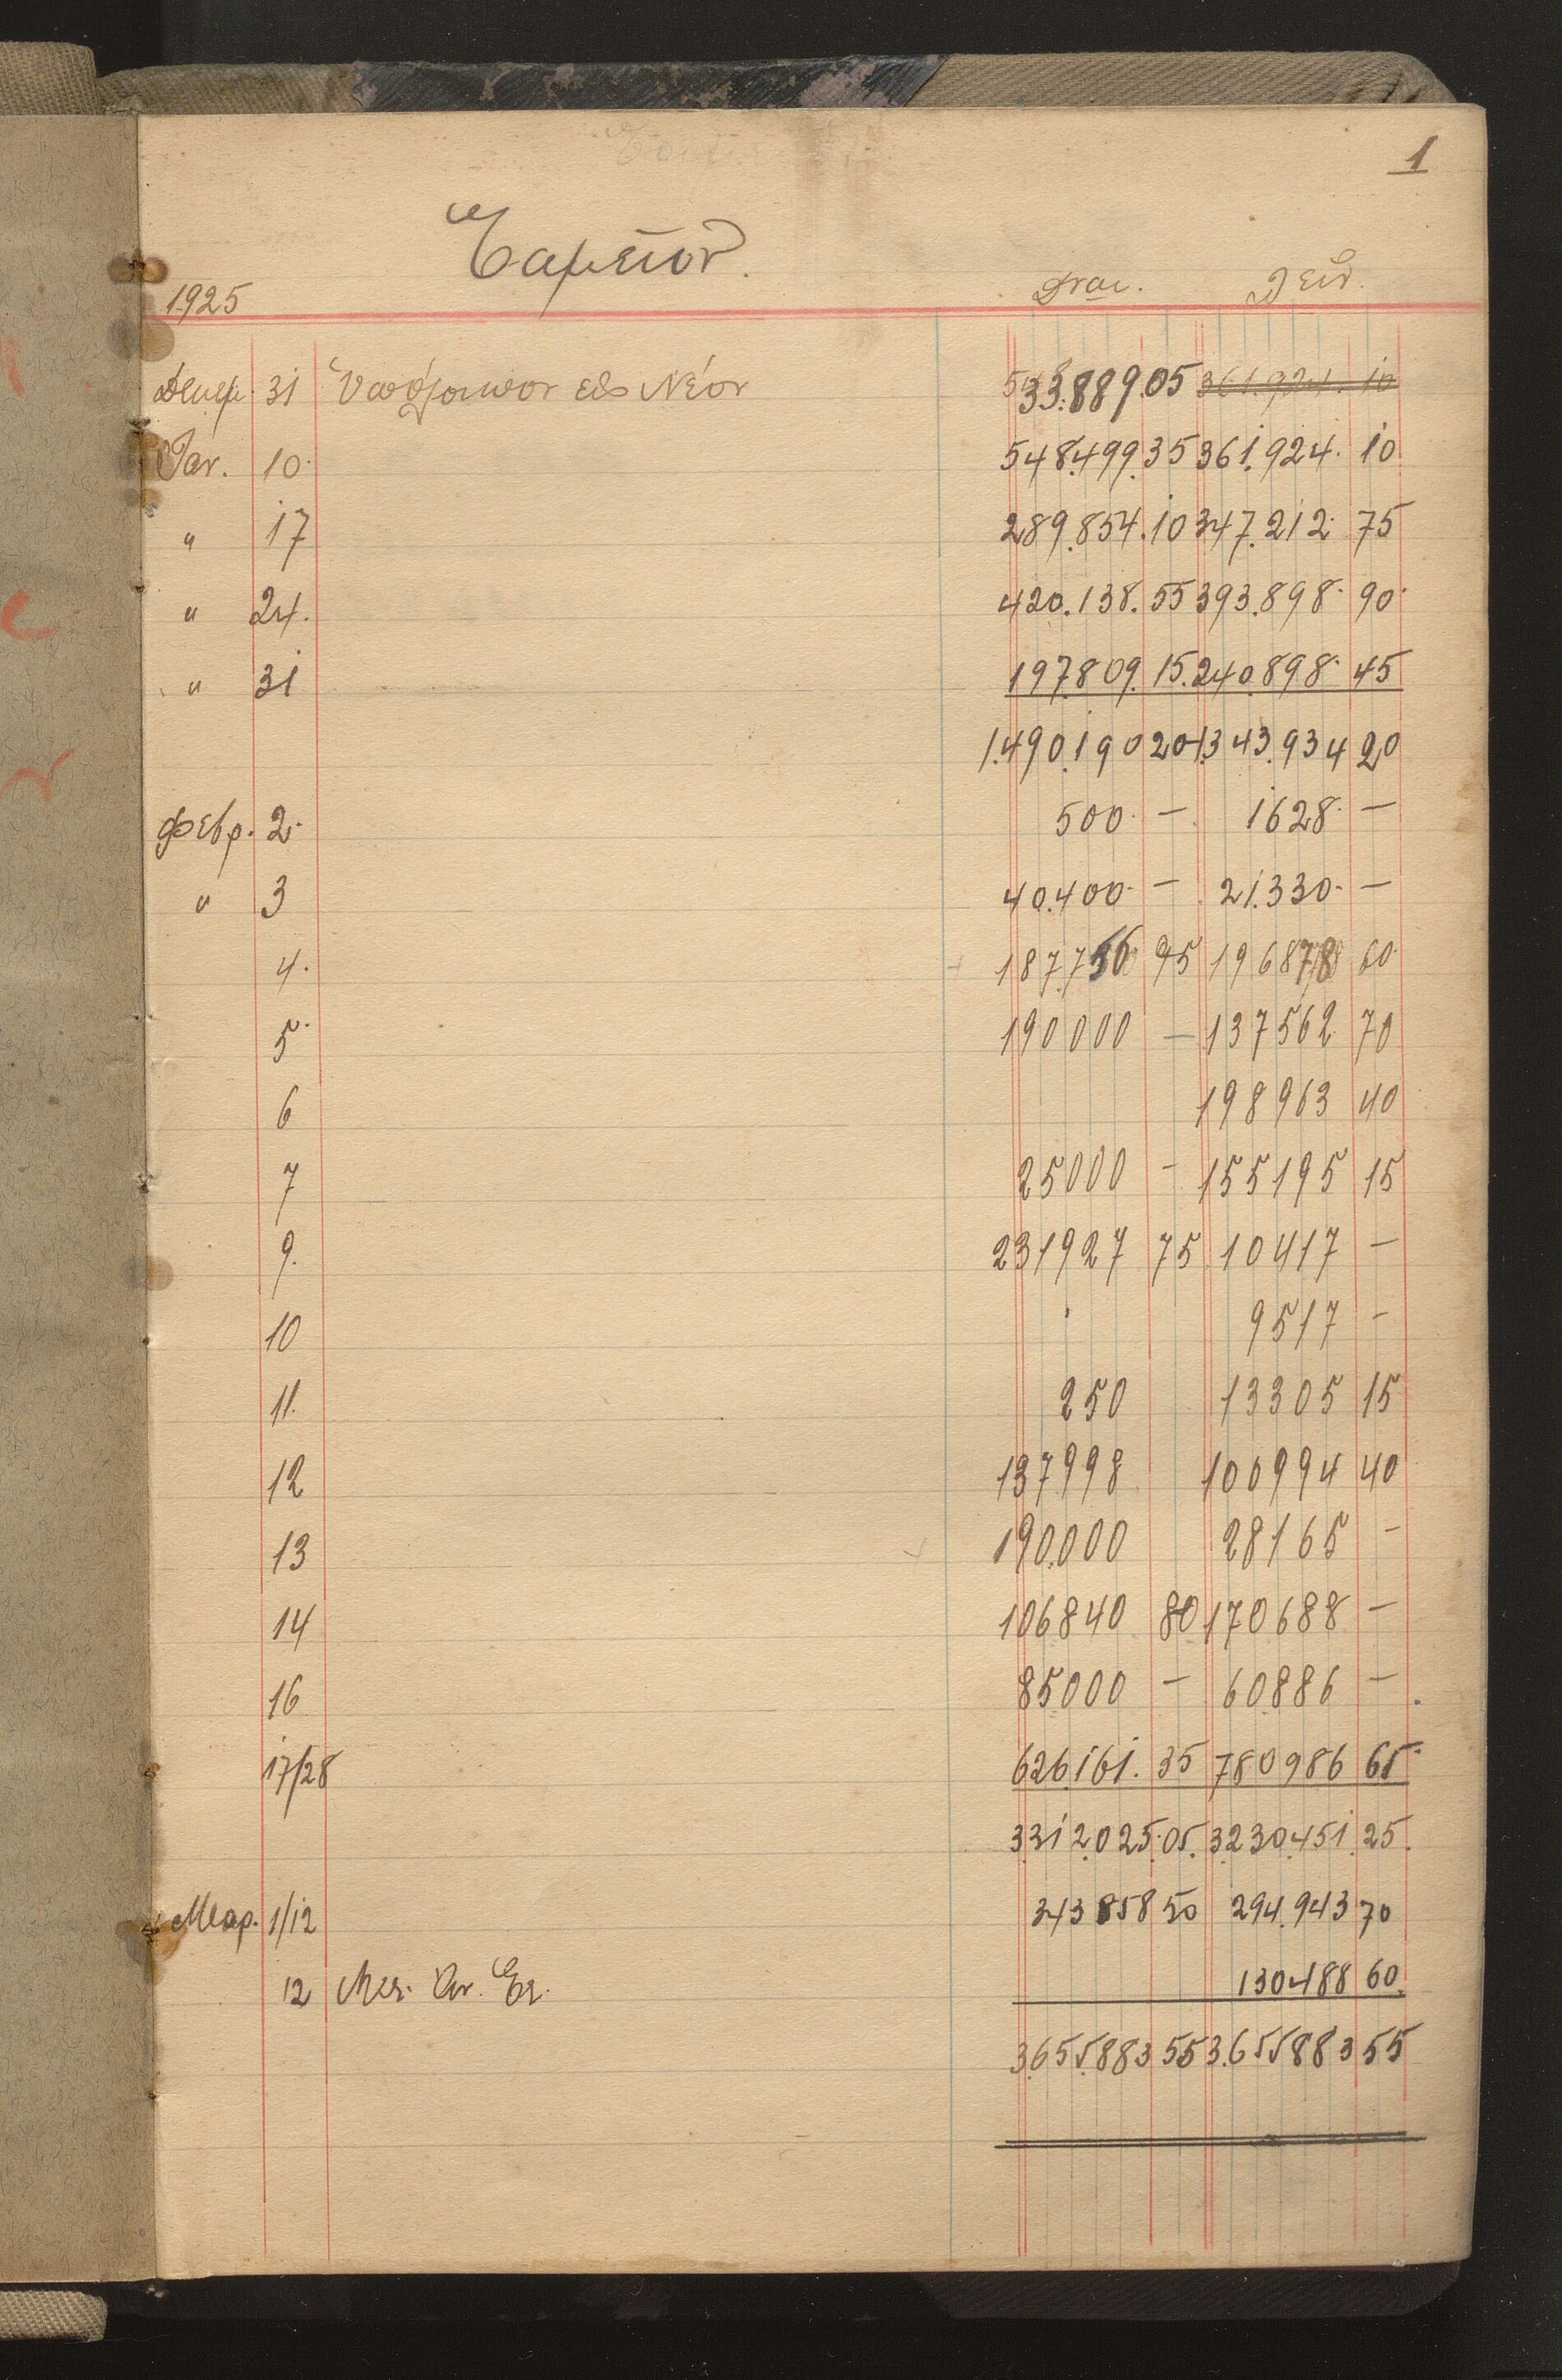 1
Ταμεῖον.
1925
Δοῦν. Λαβ.
Δεκεμ. 31 Ὑπόλοιπον εἰς Νέον 33.889.05 361.924.10
Ἰαν. 10 548.499.35 361.924.10
" 17 289.854.10 347.212.75
" 24. 420.138.55 393.898.90
" 31 197.809.15 240.898.45
1.490.190 20 1343.934 20
Φεβρ. 2 500 — 1628 —
" 3 40.400 — 21.330 —
4. 187.756 95 196878 60
5 190000 — 137562 70
6 198963 40
7 25000 — 155195 15
9. 231927 75 10417 —
10 9517 —
11. 250 13305 15
12 137998 100994 40
13 190.000 28165 —
14 106840 80 170688 —
16 85000 — 60886 —
17/28 626.161.35 780986 65
3312.025.05 3230.451.25
Μαρ. 1/12 343858 50 294.943 70
12 130488 60
3.655.883 55 3.655883 55